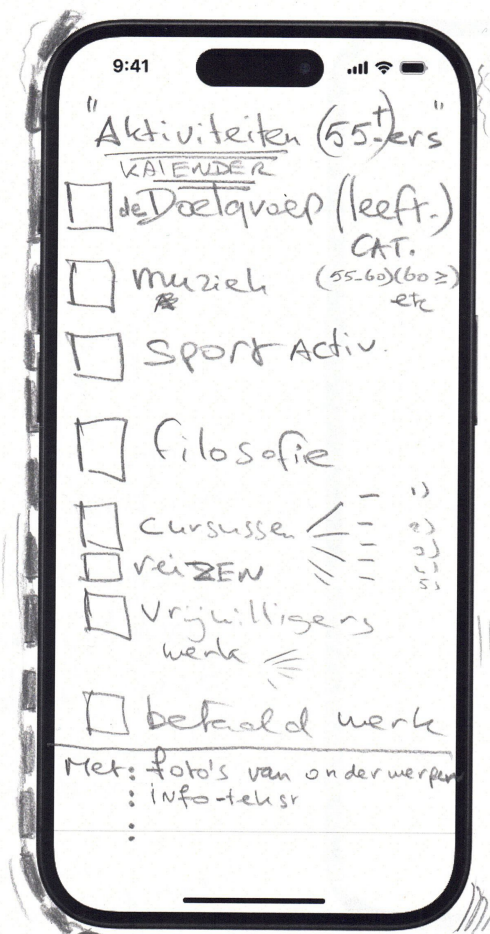 9:41
"Aktiviteiten (55+ers"
KALENDER
de Doelgroep (leeft.)
CAT.
muziek (55-60)(60≥)
etc
sport Activ.
filosofie
cursussen
1)
2)
3)
4)
5)
reiZEN
Vrijwilligers
werk
betaald werk
Met: foto's van onderwerpen
info-tekst